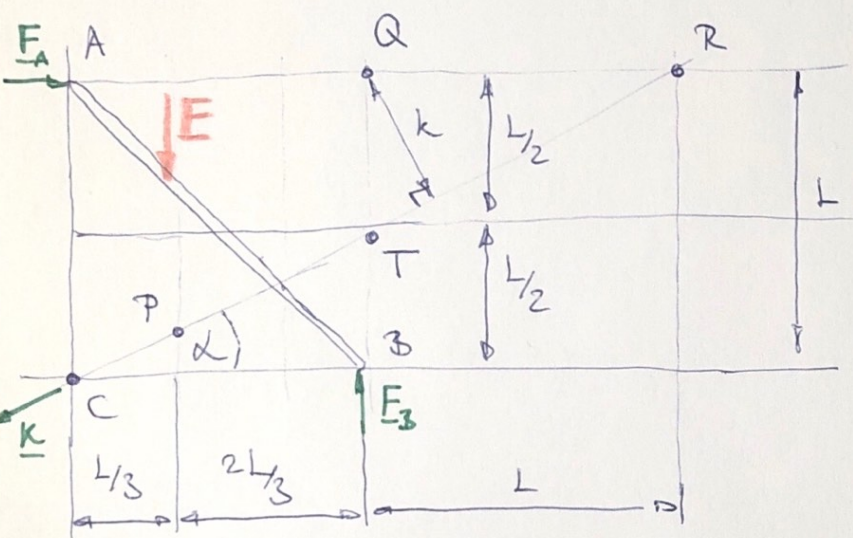 F_A A Q R
E
k L/2
L
T
P L/2
α B
C
K F_B
L/3 2L/3 L